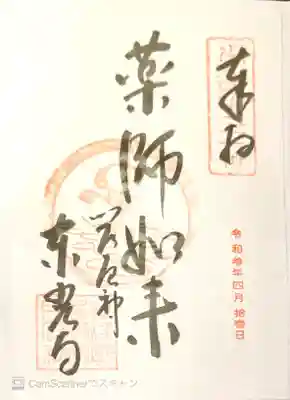 奉拝
令和参年四月 拾壹日
薬師如来
東光寺
CamScannerでスキャン